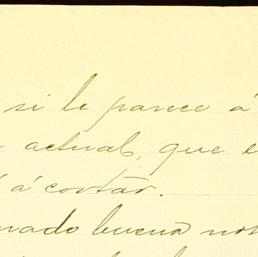 si le parece á
actual, que e
á cortar.
nado buena not